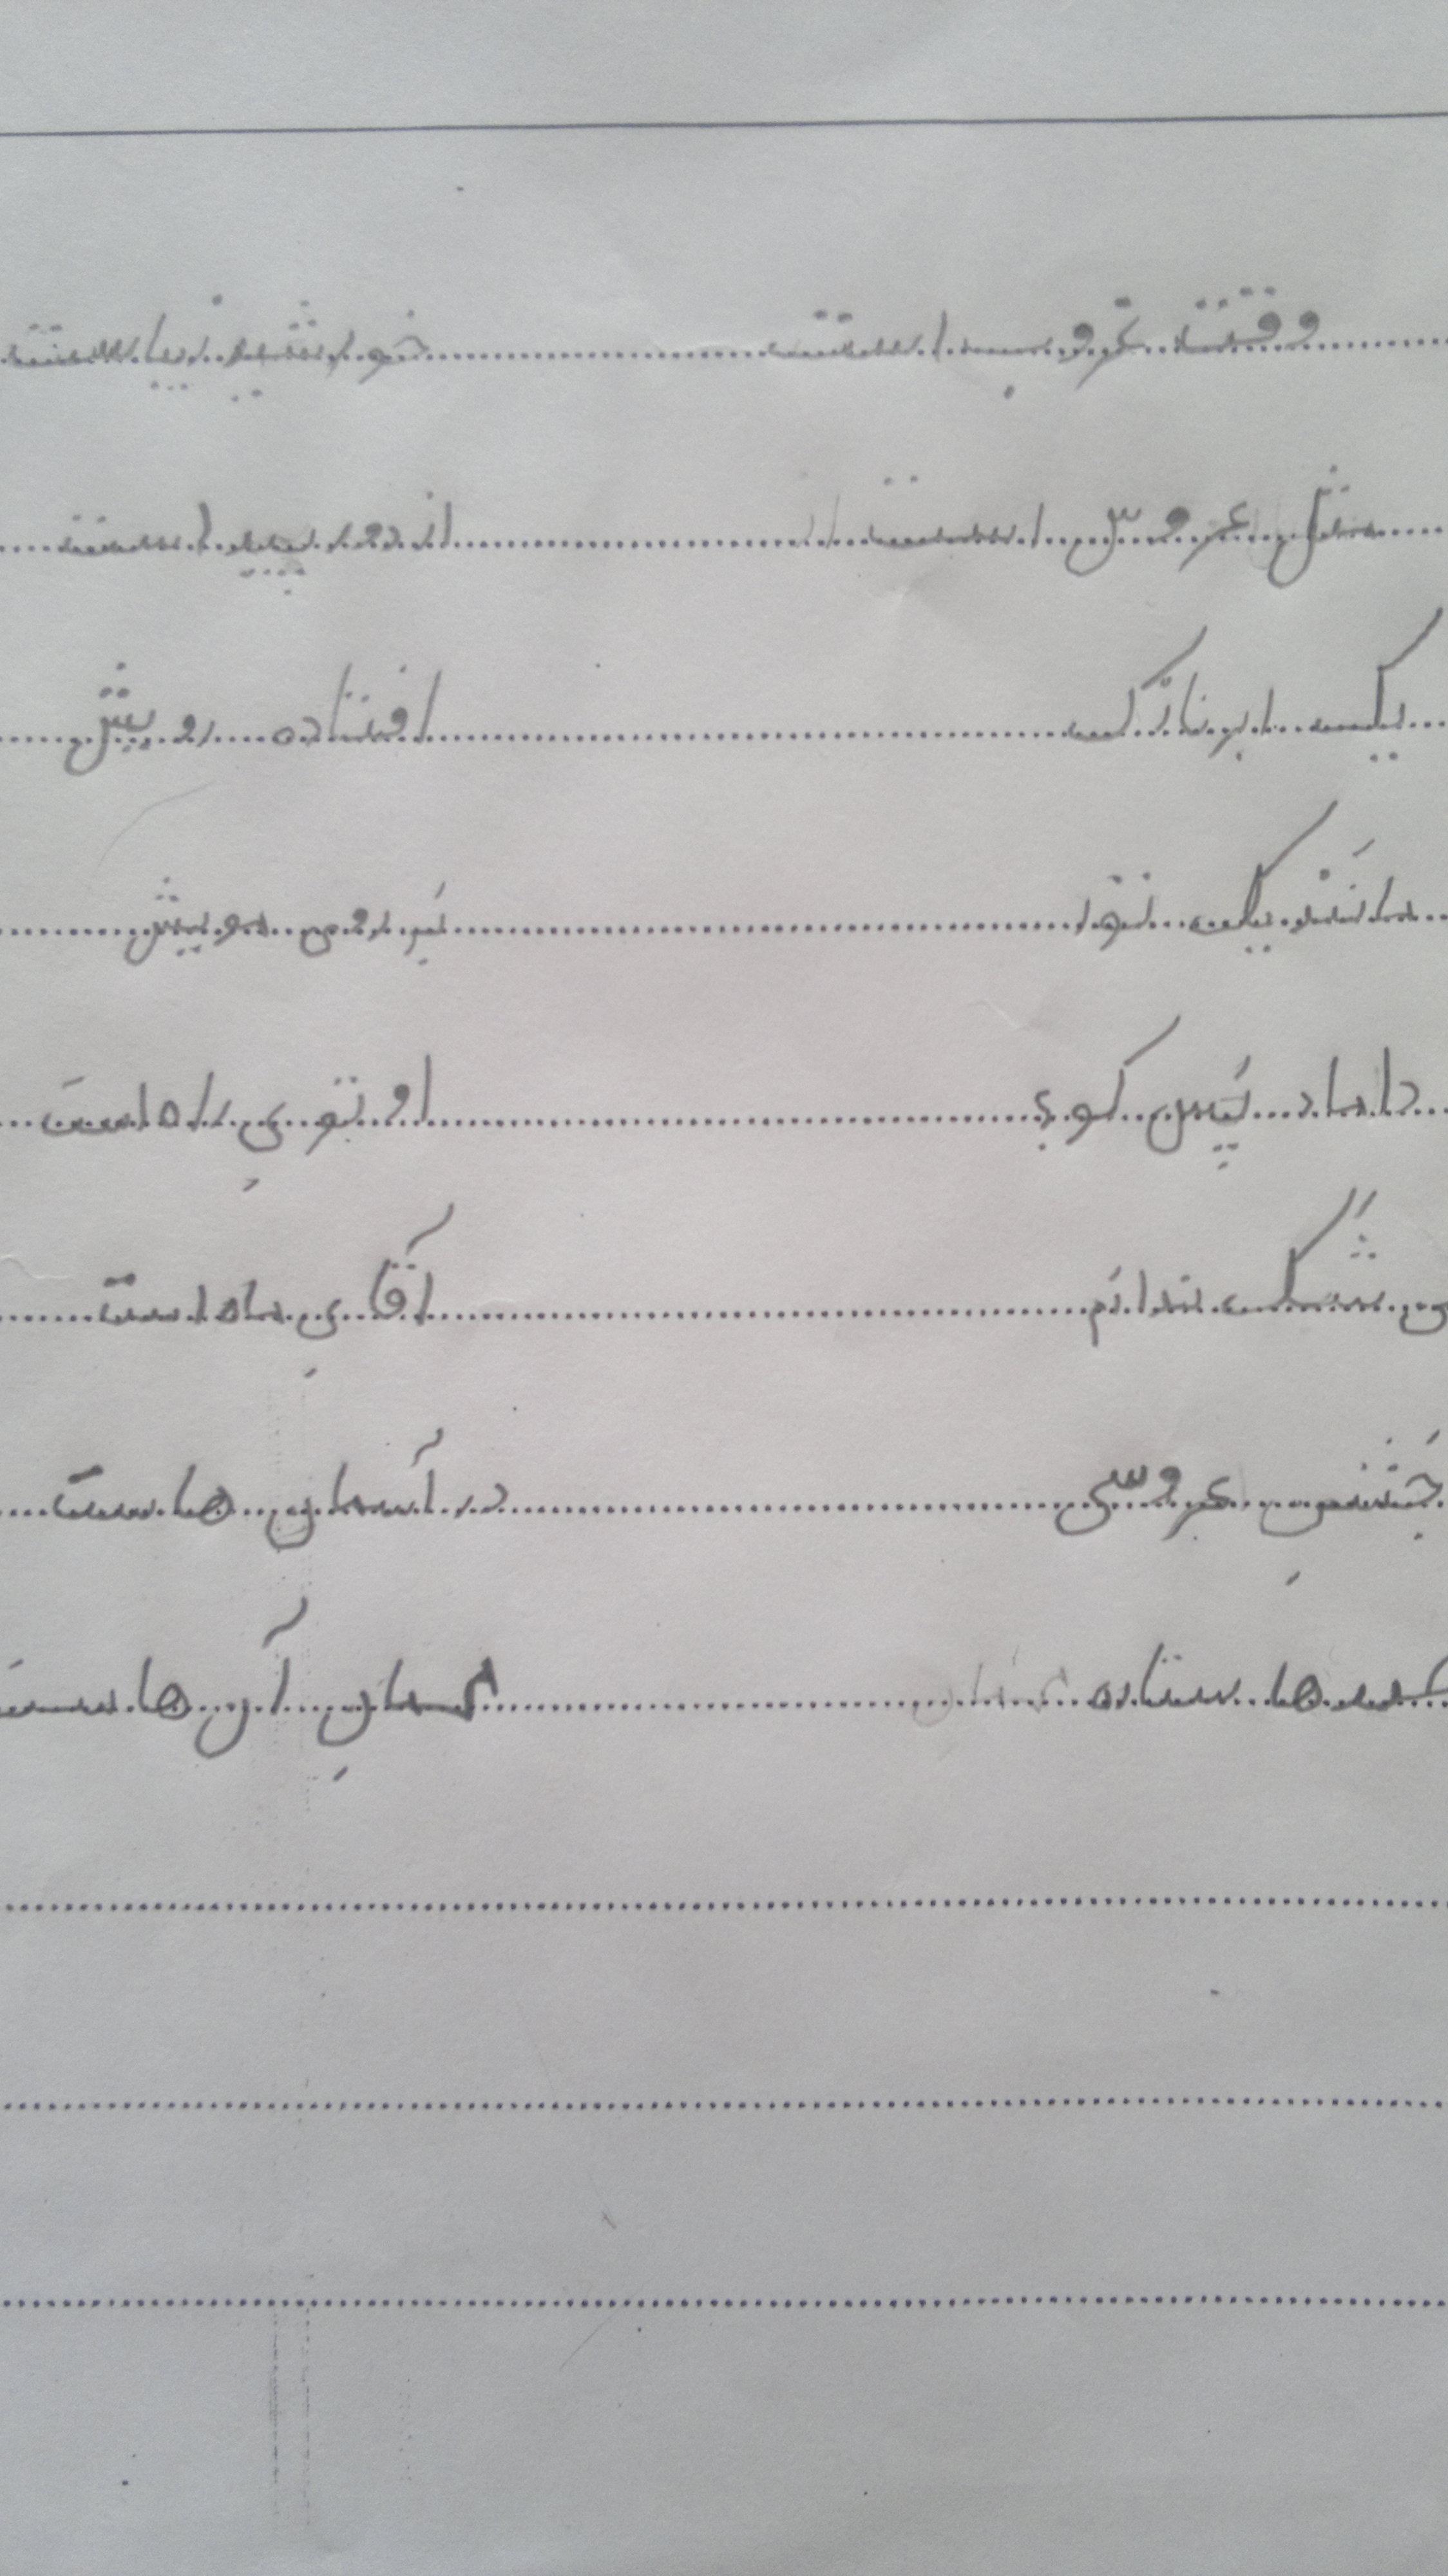 وقت غروب است خورشید زیباست
مثل عروس است از دور پیداست
یک ابر نازک افتاده رویش
مانند یک تور بر روی مویش
داماد پس کو؟ او توی راه است
شک ندارم آقای ماه است
جشن عروسی در آسمان هاست
صدها ستاره مهمان آن هاست